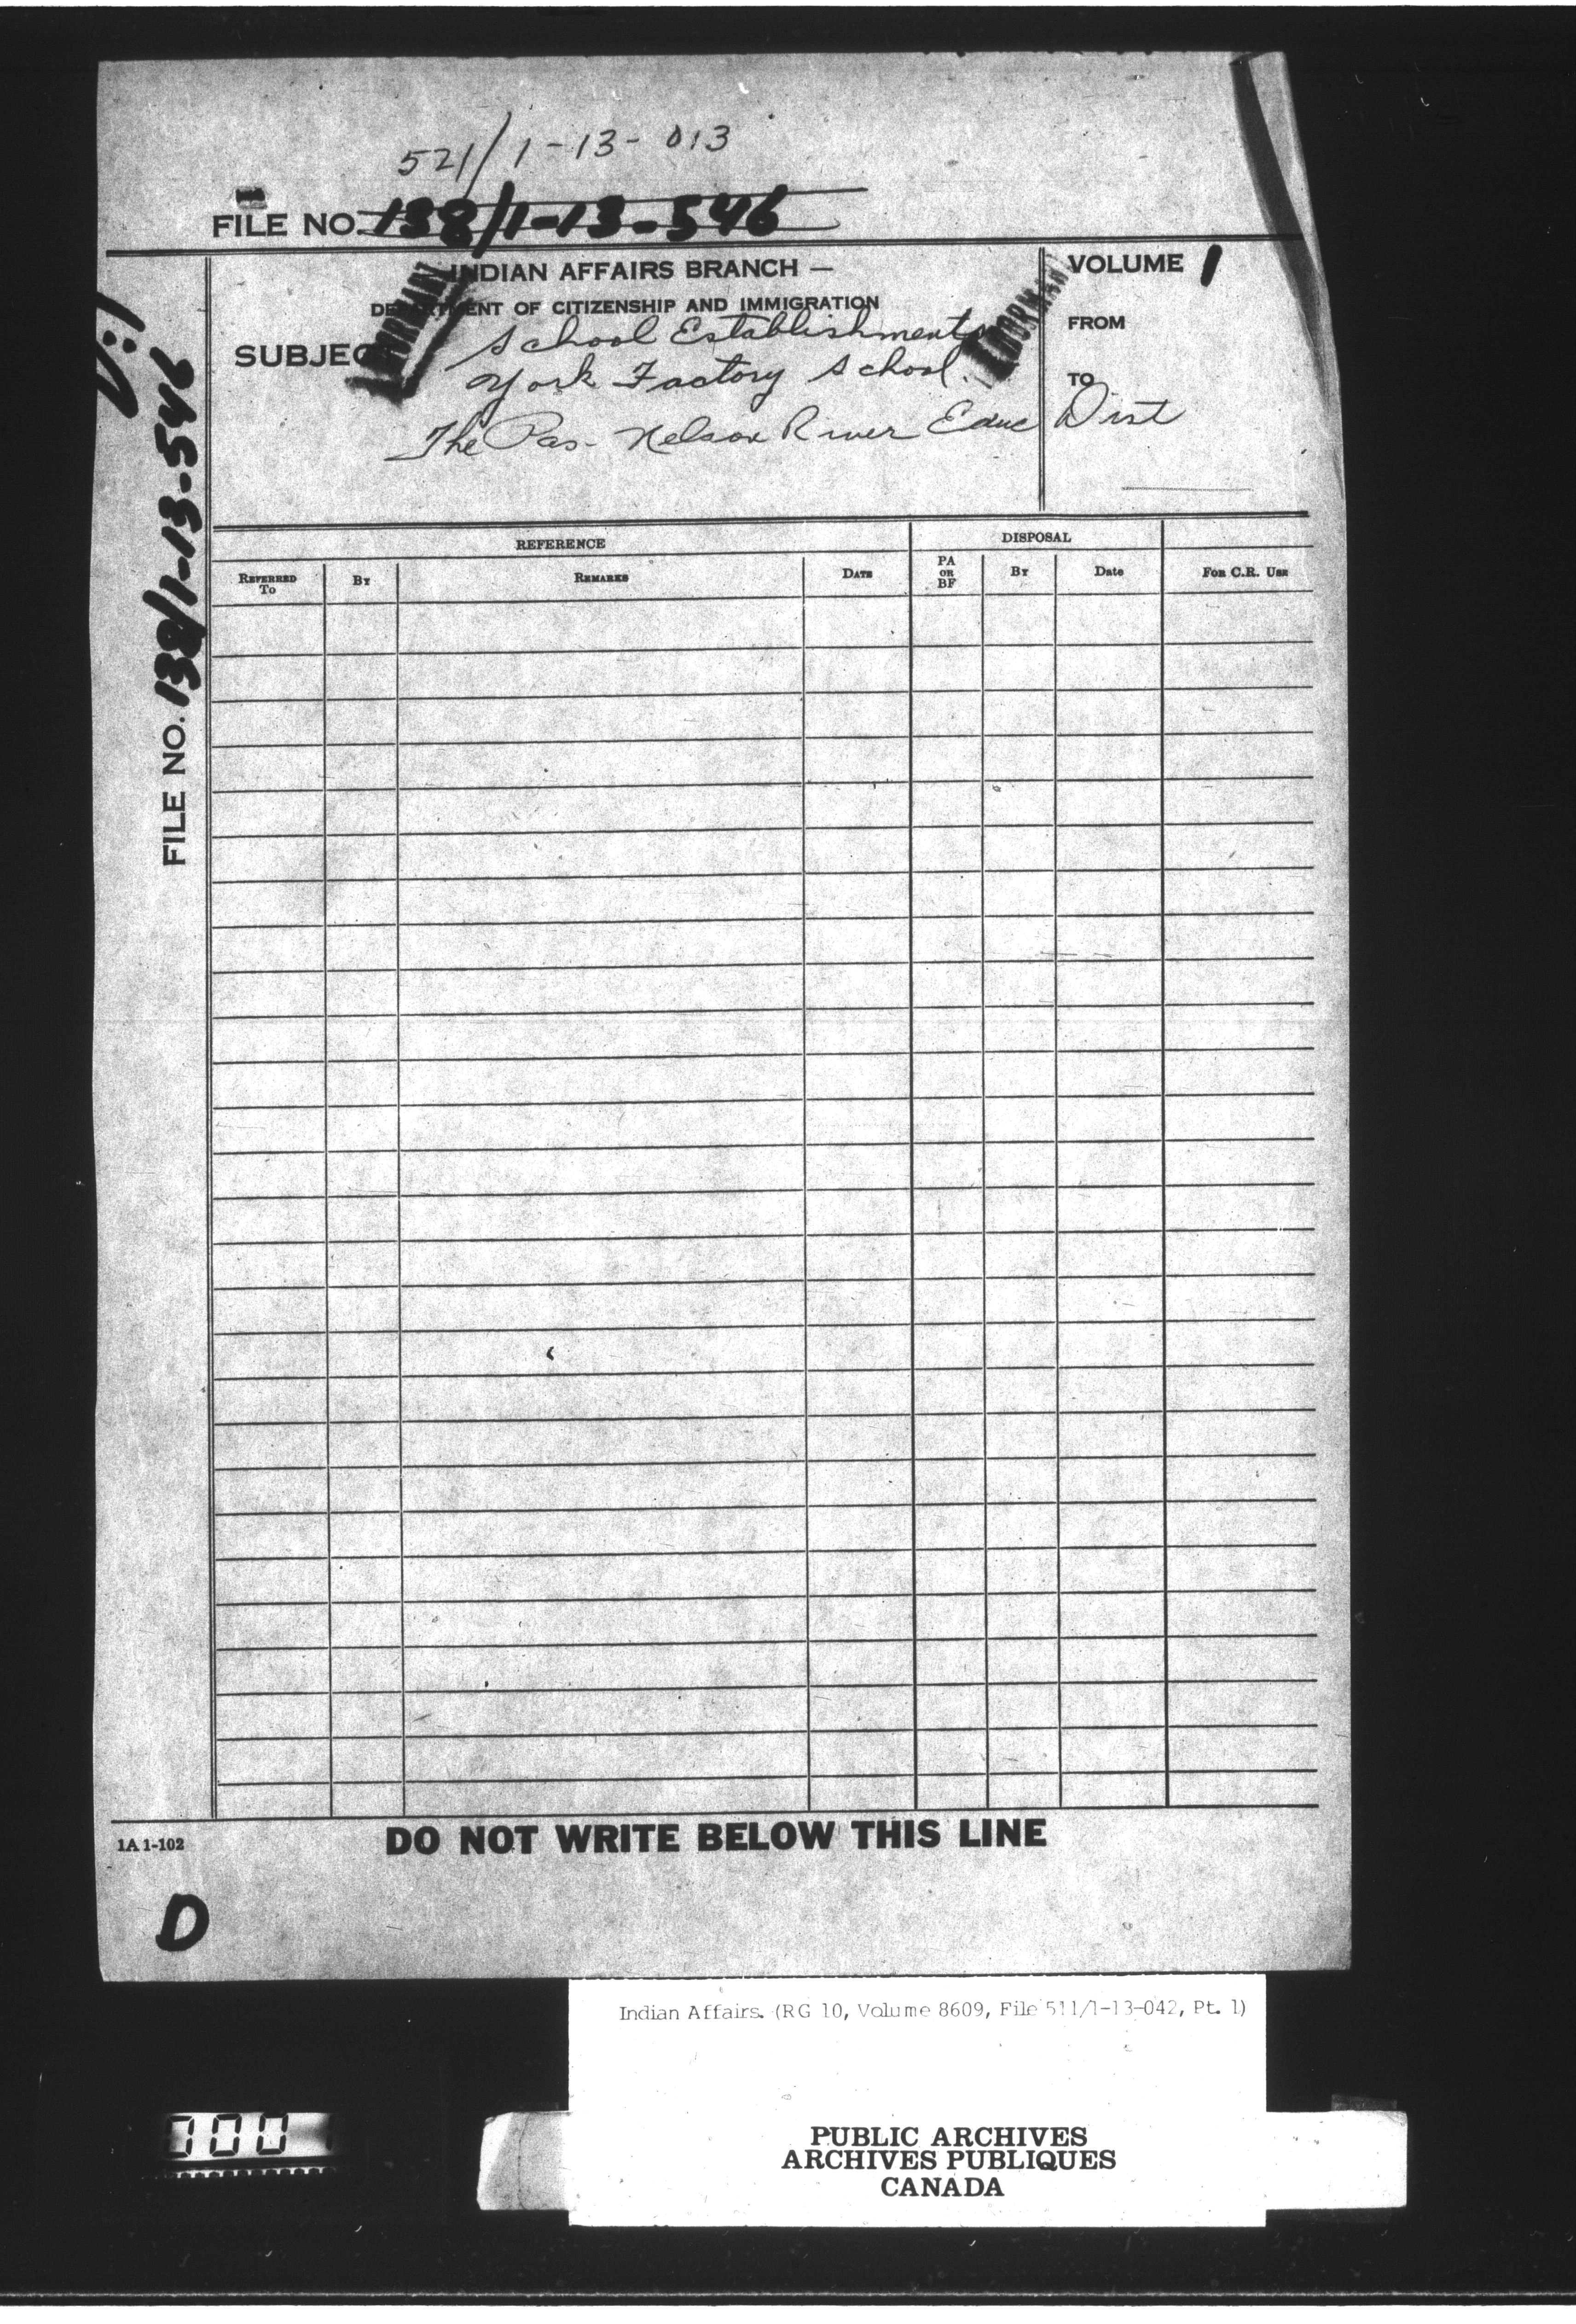 521/1-13-013
FILE NO. 138/1-13-546
INDIAN AFFAIRS BRANCH —
DEPARTMENT OF CITIZENSHIP AND IMMIGRATION
VOLUME 1
FROM
TO
SUBJEC
School Establishments
York Factory School.
The Pas - Nelson River Educ Dist
DORMANT
DORMANT
V:1
FILE NO. 138/1-13-546
REFERENCE
DISPOSAL
REFERRED TO
BY
REMARKS
DATE
PA OR BF
BY
Date
FOR C.R. USE
1A 1-102
DO NOT WRITE BELOW THIS LINE
D
Indian Affairs. (RG 10, Volume 8609, File 511/1-13-042, Pt. 1)
PUBLIC ARCHIVES
ARCHIVES PUBLIQUES
CANADA